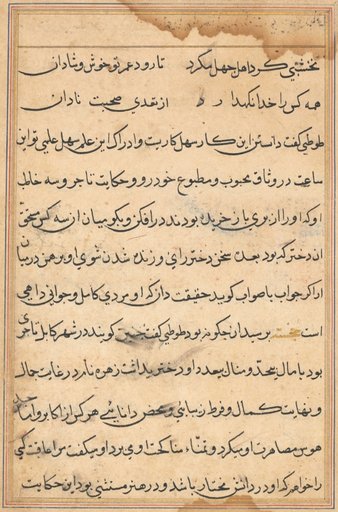 نخشبی گرد اهل جهل مگرد تا رود عمر تو خوش و شادان
همه کس را خدا نگهدارد از صحبت نادان
طوطی گفت دانستن این کار سهل کاریست و ادراک این علم سهل علمی تو این
ساعت در وثاق محبوب و مطبوع خود رو و حکایت تاجر و سه خاطب
او که او را از پری باز خریده بودند در افکن و بگو میان آن سه کس مستحق
آن دختر که بود بعده سخن دختر رای و زنده شدن شوی او و برهمن در میان
آر اگر جواب با صواب گوید حقیقت دان که او مردی کامل و جوانی داهی
است خجسته پرسید آن چگونه بود طوطی گفت چنین گویند در شهر کابل تاجری
بود با مال بیحد و منال بیعدد او دختری داشت زهره نام در غایت جمال
و نهایت کمال و فرط زیبائی و محض دانائی هر کس از اکابر و اماجد
هوس مصاهرت او میکرد و تمناء مناکحت او می بود او میگفت من اعاقبت کسی
را خواهم که او در دانش مختار باشد و در هنر مستثنی بود این حکایت